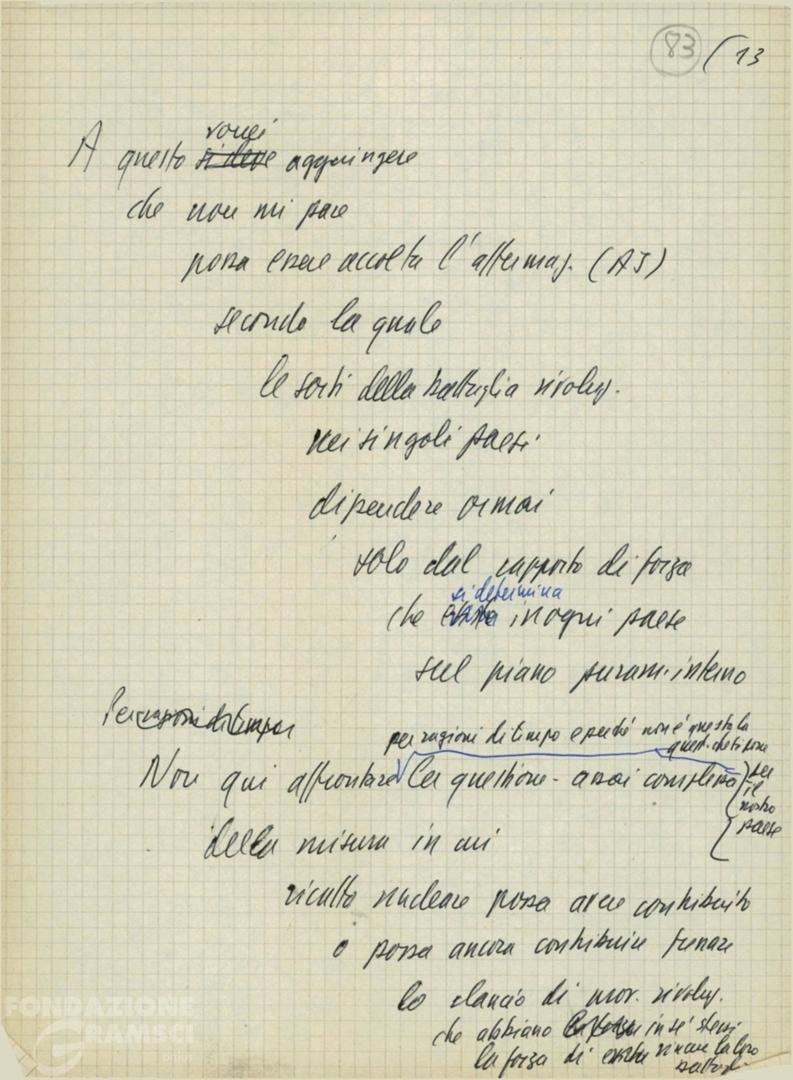 83 / 13
vorrei
A questo si deve aggiungere
che non mi pare
possa essere accolta l'affermaz. (AJ)
secondo la quale
le sorti della battaglia rivoluz.
nei singoli paesi
dipendere ormai
solo dal rapporto di forza
si determina
che in ogni paese
sul piano puram. interno
Per ragioni di tempo
per ragioni di tempo e perché non è questa la
quest. che si pone
Non qui affrontare la questione - assai complessa
per
il
nostro
paese
della misura in cui
ricatto nucleare possa avere contribuito
o possa ancora contribuire frenare
lo slancio di mov. rivoluz.
che abbiano in sé stessi
la forza di vincere la loro
FONDAZIONE
GRAMSCI